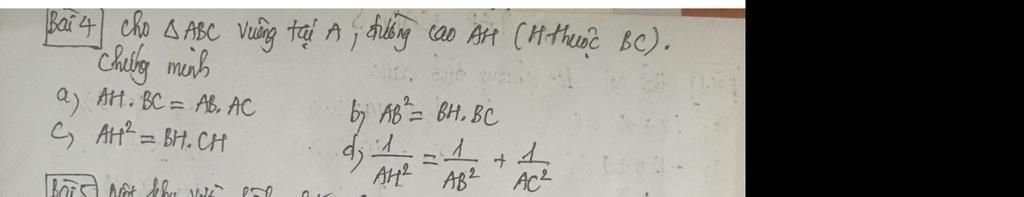 Bài 4 Cho △ABC vuông tại A, đường cao AH (H thuộc BC).
Chứng minh
a) AH.BC = AB.AC b) AB² = BH.BC
c) AH² = BH.CH d) 1/AH² = 1/AB² + 1/AC²
Bài 5 Một khu